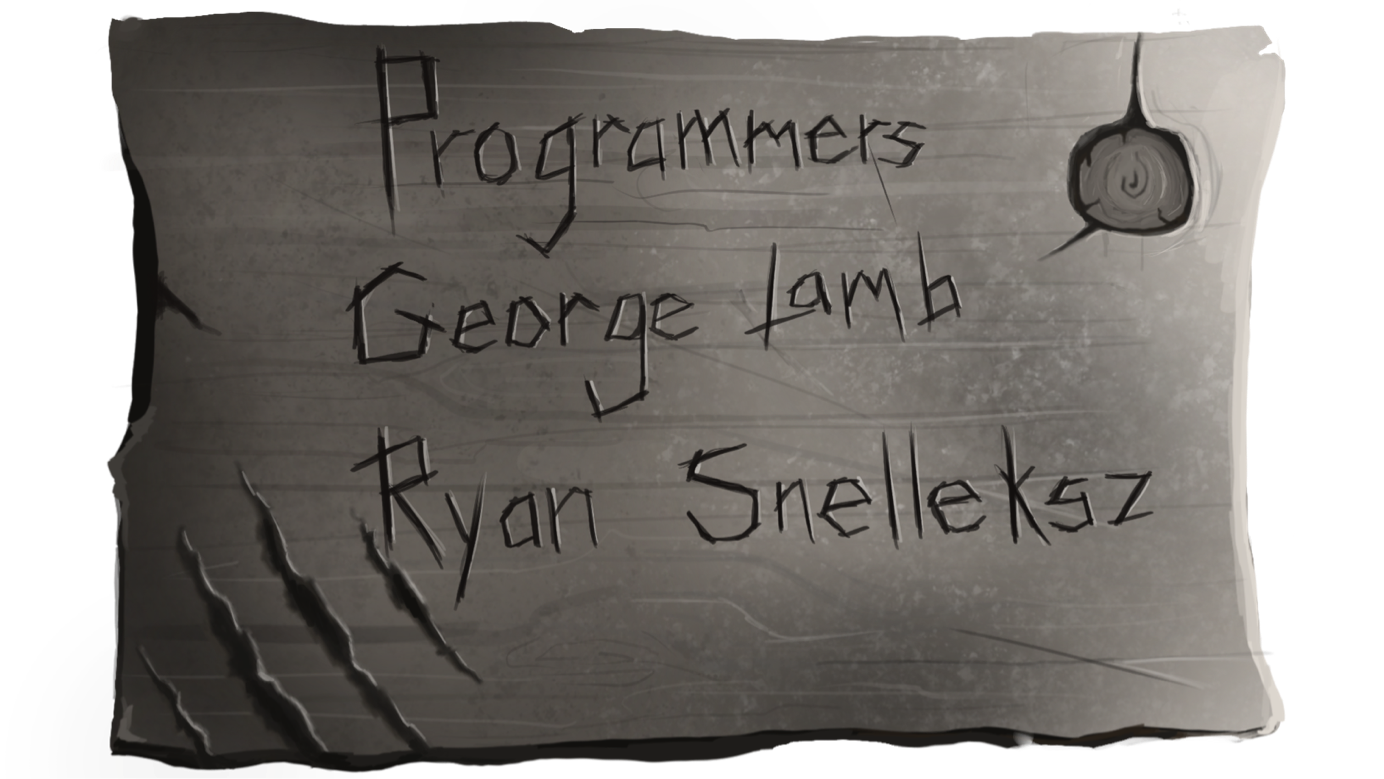 Programmers
George Lamb
Ryan Snelleksz